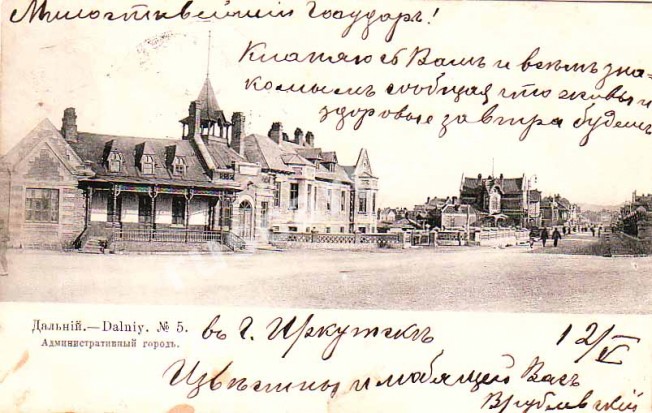 Милостивейший Государь!
Кланяюсь Вамъ и всѣмъ зна-
комымъ сообщая что живы и
здоровы завтра будемъ
Дальній.—Dalniy. № 5.
Административный городъ.
въ г. Иркутскѣ 12/V
и любящей Васъ
Врублевский